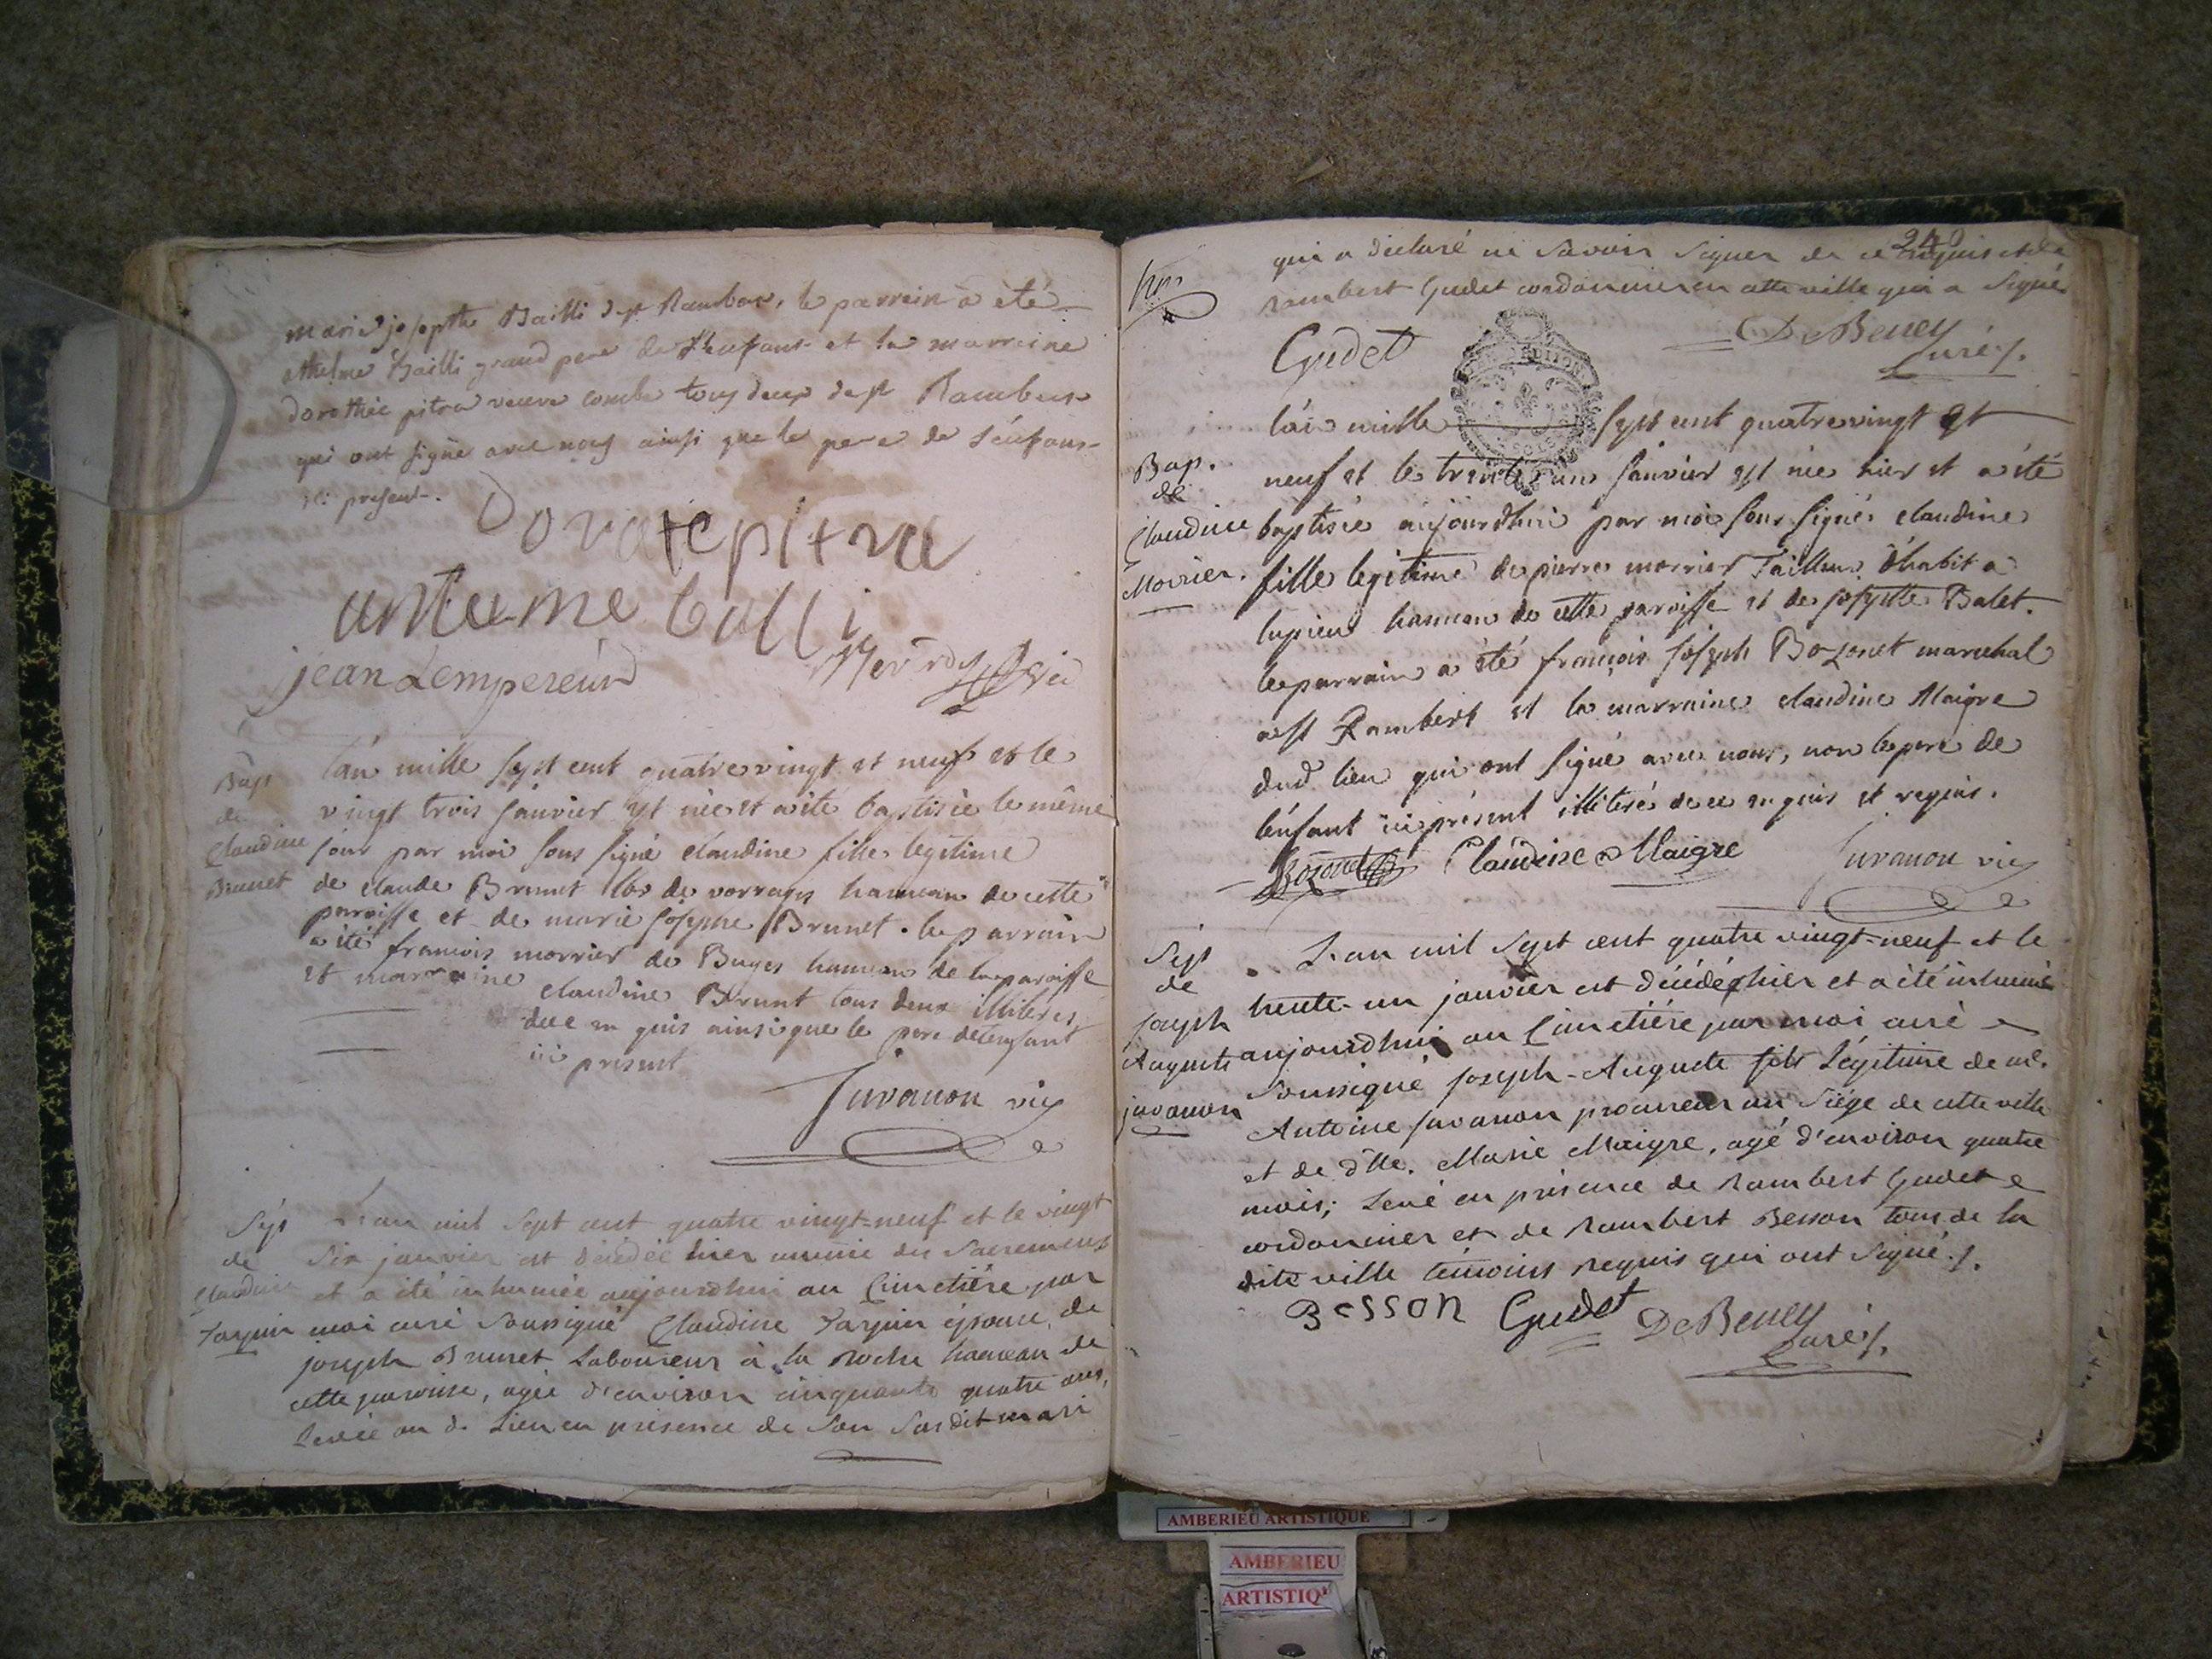 marie josepthe Bailli de st Rambert, le parrein a été
athelme Bailli grand pere de l'enfant et la marreine
dorothée pitra veuve combe tous deux de st Rambert
qui ont signé avec nous ainsi que le pere de l'enfant
ici present.
Dorotepitra
anteme balli
jean Lempereur
Bap
de
Claudine
Brunet
l'an mille sept cent quatre vingt et neuf et le
vingt trois janvier est née et a été baptisée le même
jour par moi sous signé claudine fille legitime
de claude Brunet lbr de vorrages hameau de cette
paroisse et de marie josephe Brunet. le parrain
a été francois morrier de Buges hameau de la paroisse
et marraine claudine Brunet tous deux illiteres
de ce en quis ainsi que le pere de l'enfant
ici present
Juvanon vic
Sép
de
Claudine
Tarpin
L'an mil sept cent quatre vingt-neuf et le vingt
six janvier est décédée hier munie des Sacremens
et a été inhumée aujourdhui au Cimetiére par
moi curé soussigné Claudine Tarpin épouse de
joseph Brunet Laboureur à la Roche hameau de
cette paroisse, agée d'environ cinquante quatre ans,
Levée au d. Lieu en présence de son susdit mari
240
qui a déclaré ne savoir signer de ce enquis et de
Rambert Gudet cordonnier en cette ville qui a signé
Gudet
DeBeney
curé
Bap.
de
Claudine
Morrier.
l'an mille sept cent quatre vingt et
neuf et le trente un janvier est née hier et a été
baptisée aujourdhui par moi sous signé claudine
fille legitime de pierre morrier Tailleur d'habit a
lupieu hameau de cette paroisse et de josephte Balet.
le parrain a été françois joseph Bozonet marechal
a st Rambert et la marraine claudine Maigre
dud lieu qui ont signé avec nous, non le pere de
l'enfant ici présent illiteré de ce en quis et requis.
Bozonet Claudine Maigre Juvanon vic
Sép
de
joseph
Auguste
juvanon
L'an mil sept cent quatre vingt-neuf et le
trente-un janvier est décédé hier et a été inhumé
aujourdhui au Cimetiére par moi curé
soussigné joseph-Auguste fils Légitime de me.
Antoine juvanon procureur au Siége de cette ville
et de d'lle. Marie Maigre, agé d'environ quatre
mois; Levé en présence de Rambert Gudet
cordonnier et de Rambert Besson tous de la
dite ville témoins requis qui ont signé.
Besson Gudet DeBeney
curé
AMBERIEU ARTISTIQUE
AMBERIEU
ARTISTIQ